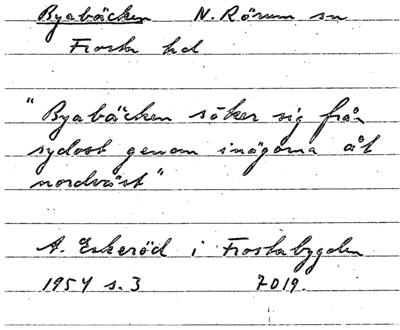 Byabäcken N. Rörum sn
Frosta hd
"Byabäcken söker sig från
sydost genom inägorna åt
nordväst"
A. Eskeröd i Frostabygden
1954 s. 3 7019.